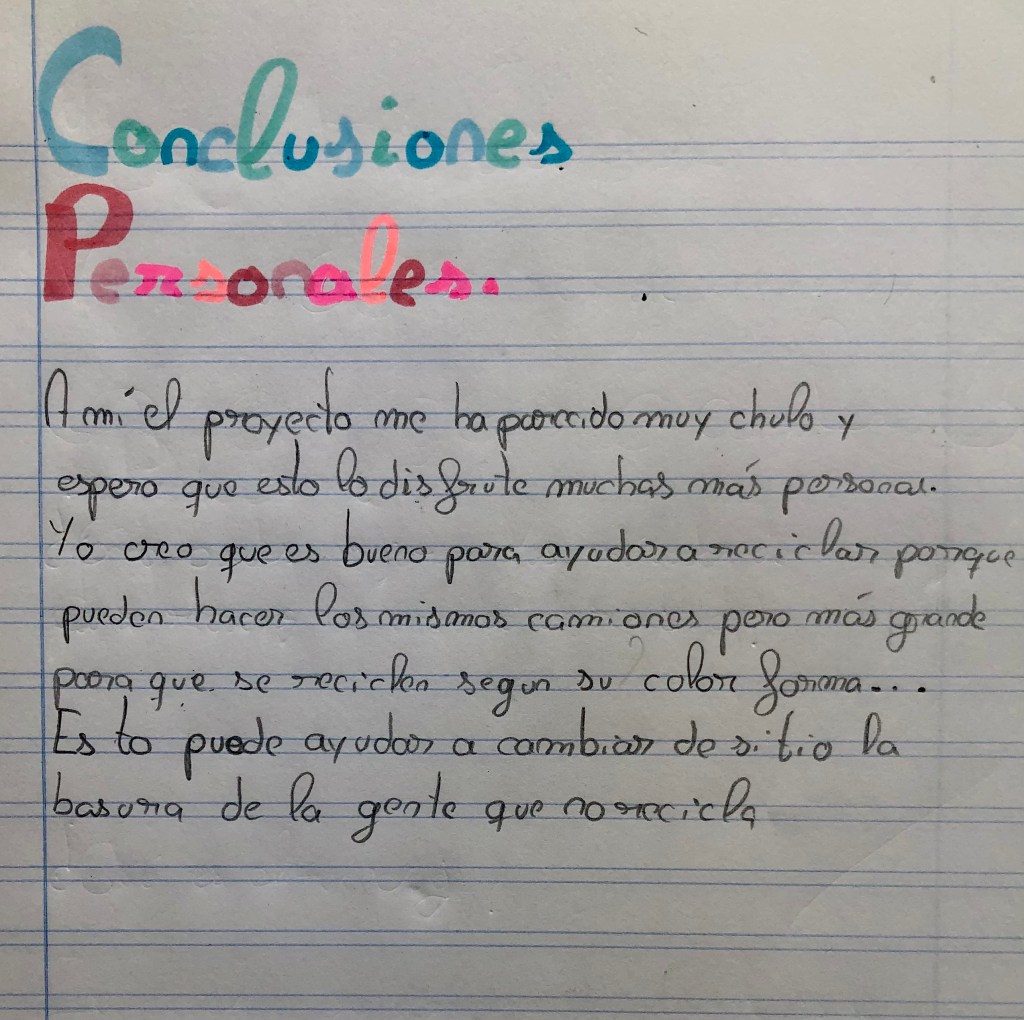 Conclusiones
Personales.
A mí el proyecto me ha parecido muy chulo y
espero que esto lo disfrute muchas más personas.
Yo creo que es bueno para ayudar a reciclar porque
pueden hacer los mismos camiones pero más grande
para que se reciclen segun su color forma...
Esto puede ayudar a cambiar de sitio la
basura de la gente que no recicla